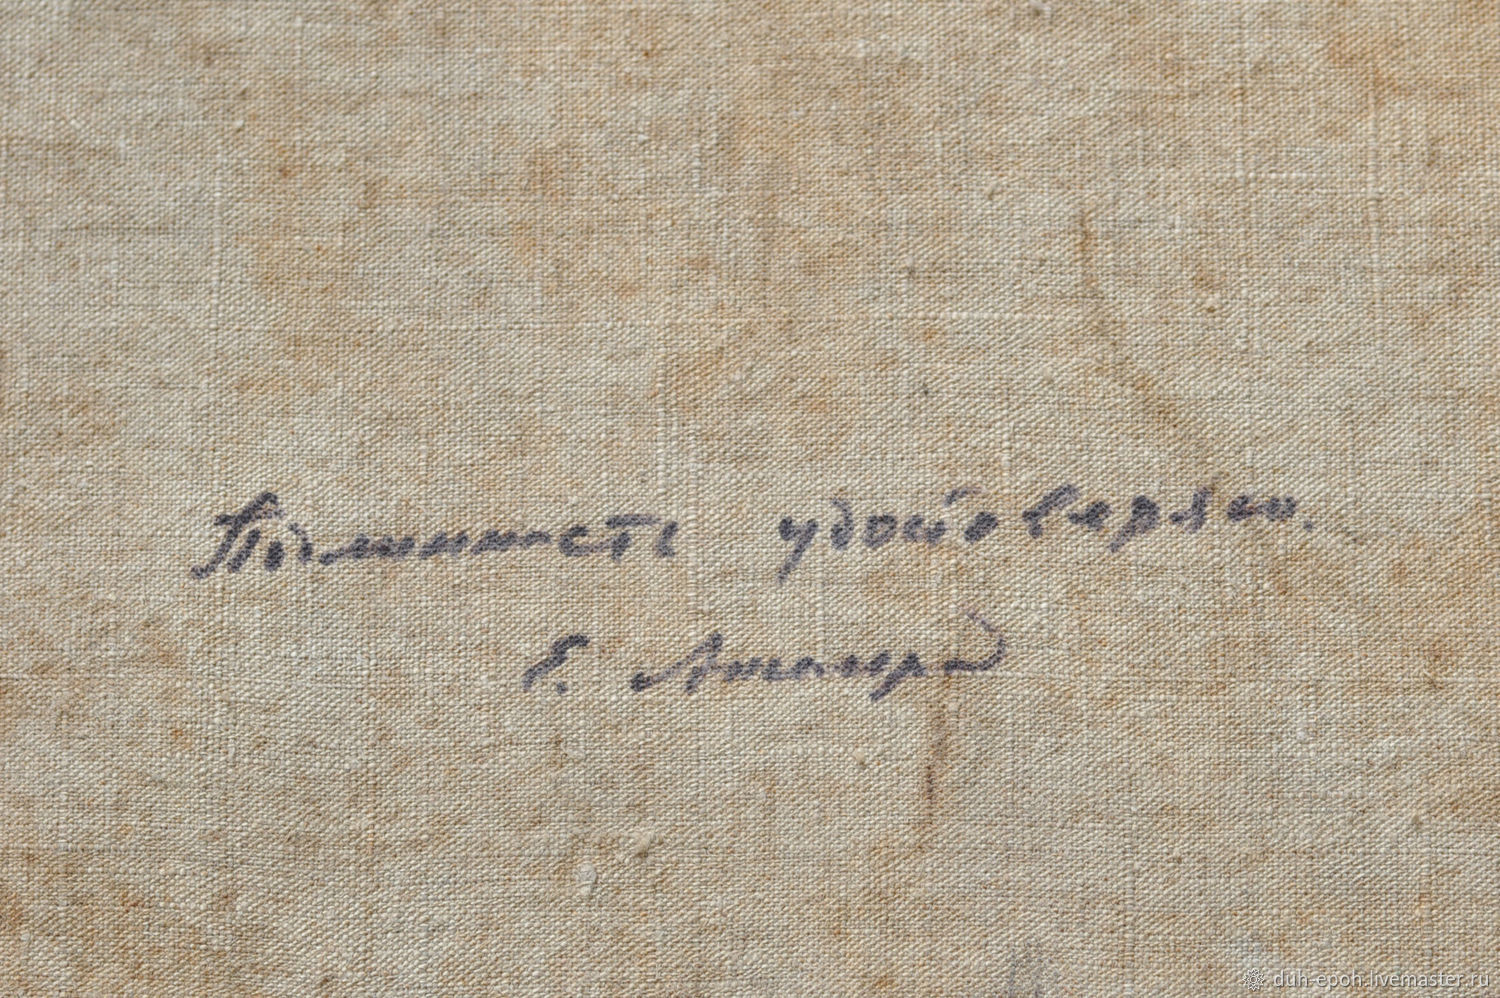 Подлинность удостоверяю.
Е.
duh-epoh.livemaster.ru